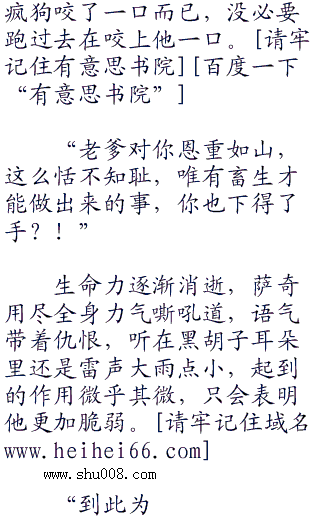 疯狗咬了一口而已，没必要
跑过去在咬上他一口。[请牢
记住有意思书院][百度一下
“有意思书院”]
“老爹对你恩重如山，
这么恬不知耻，唯有畜生才
能做出来的事，你也下得了
手？！”
生命力逐渐消逝，萨奇
用尽全身力气嘶吼道，语气
带着仇恨，听在黑胡子耳朵
里还是雷声大雨点小，起到
的作用微乎其微，只会表明
他更加脆弱。[请牢记住域名
www.heihei66.com]
www.shu008.com
“到此为